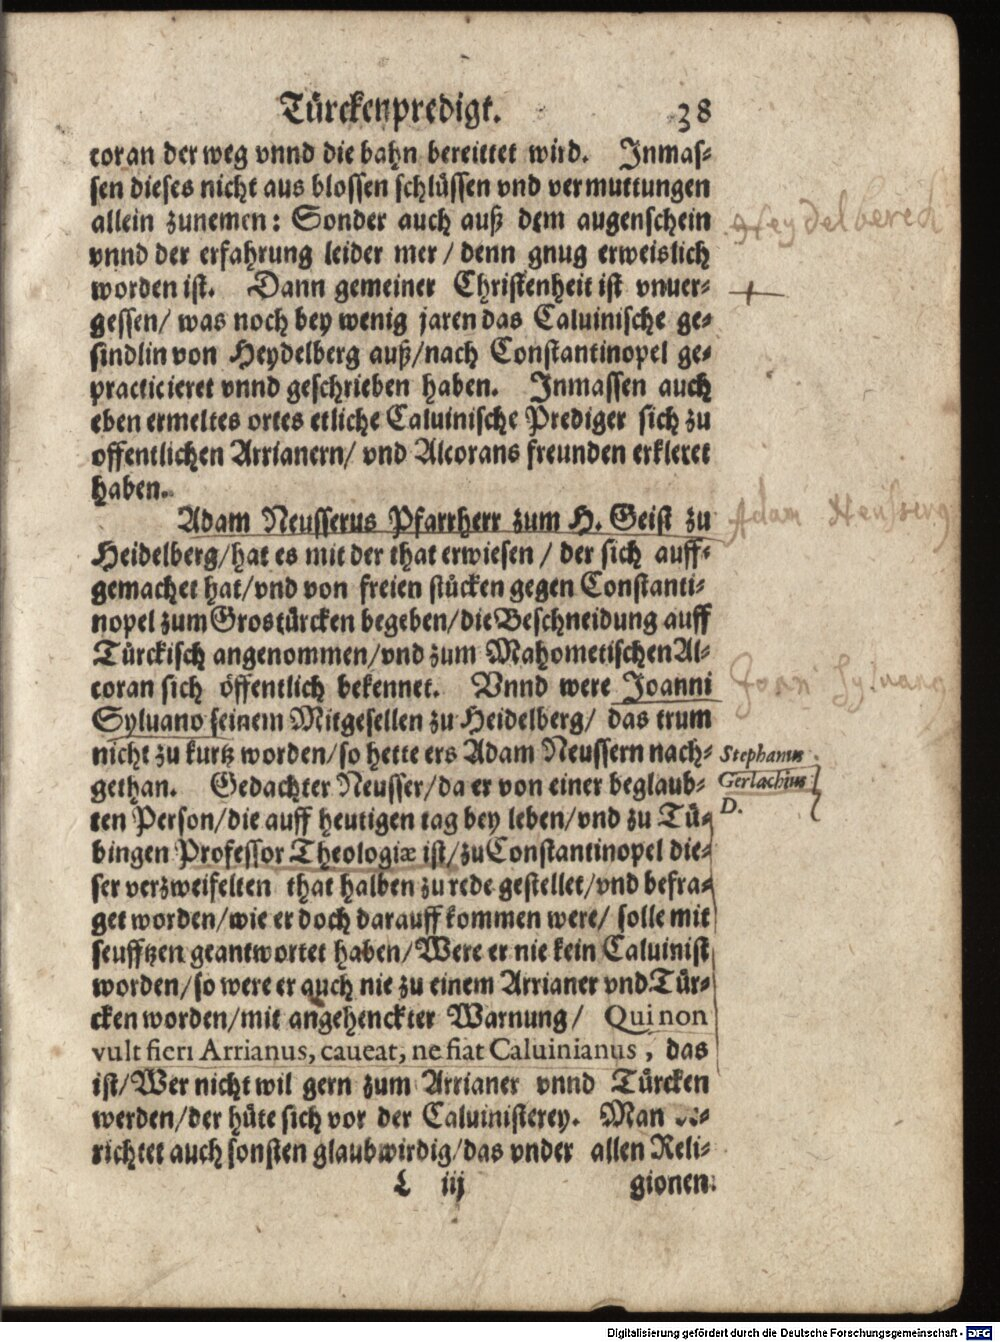 Türckenpredigt. 38
coran der weg vnnd die bahn bereittet wird. Inmas-
sen dieses nicht aus blossen schlüssen vnd vermuttungen
allein zunemen: Sonder auch auß dem augenschein
vnnd der erfahrung leider mer / denn gnug erweislich
worden ist. Dann gemeiner Christenheit ist vnuer-
gessen/ was noch bey wenig jaren das Caluinische ge-
sindlin von Heydelberg auß/nach Constantinopel ge-
practicieret vnnd geschrieben haben. Inmassen auch
eben ermeltes ortes etliche Caluinische Prediger sich zu
offentlichen Arrianern/ vnd Alcorans freunden erkleret
haben.
Adam Neusserus Pfarrherr zum H. Geist zu
Heidelberg/hat es mit der that erwiesen / der sich auff-
gemachet hat/vnd von freien stücken gegen Constanti-
nopel zum Grostürcken begeben/die Beschneidung auff
Türckisch angenommen/vnd zum Mahometischen Al-
coran sich öffentlich bekennet. Vnnd were Joanni
Syluano seinem Mitgesellen zu Heidelberg/ das trum
nicht zu kurtz worden/so hette ers Adam Neussern nach-
gethan. Gedachter Neusser/da er von einer beglaub-
ten Person/die auff heutigen tag bey leben/vnd zu Tü-
bingen Professor Theologiæ ist/zu Constantinopel die-
ser verzweifelten that halben zu rede gestellet/vnd befra-
get worden/wie er doch darauff kommen were/ solle mit
seufftzen geantwortet haben/Were er nie kein Caluinist
worden/so were er auch nie zu einem Arrianer vnd Tür-
cken worden/mit angehenckter Warnung/ Qui non
vult fieri Arrianus, caueat, ne fiat Caluinianus, das
ist/Wer nicht wil gern zum Arrianer vnnd Türcken
werden/der hüte sich vor der Caluinisterey. Man
richtet auch sonsten glaubwirdig/das vnder allen Reli-
L iij gionen
Heydelberch
Adam Neusserus
Joan Syluanus
Stephanus
Gerlachius
D.
Digitalisierung gefördert durch die Deutsche Forschungsgemeinschaft - DFG